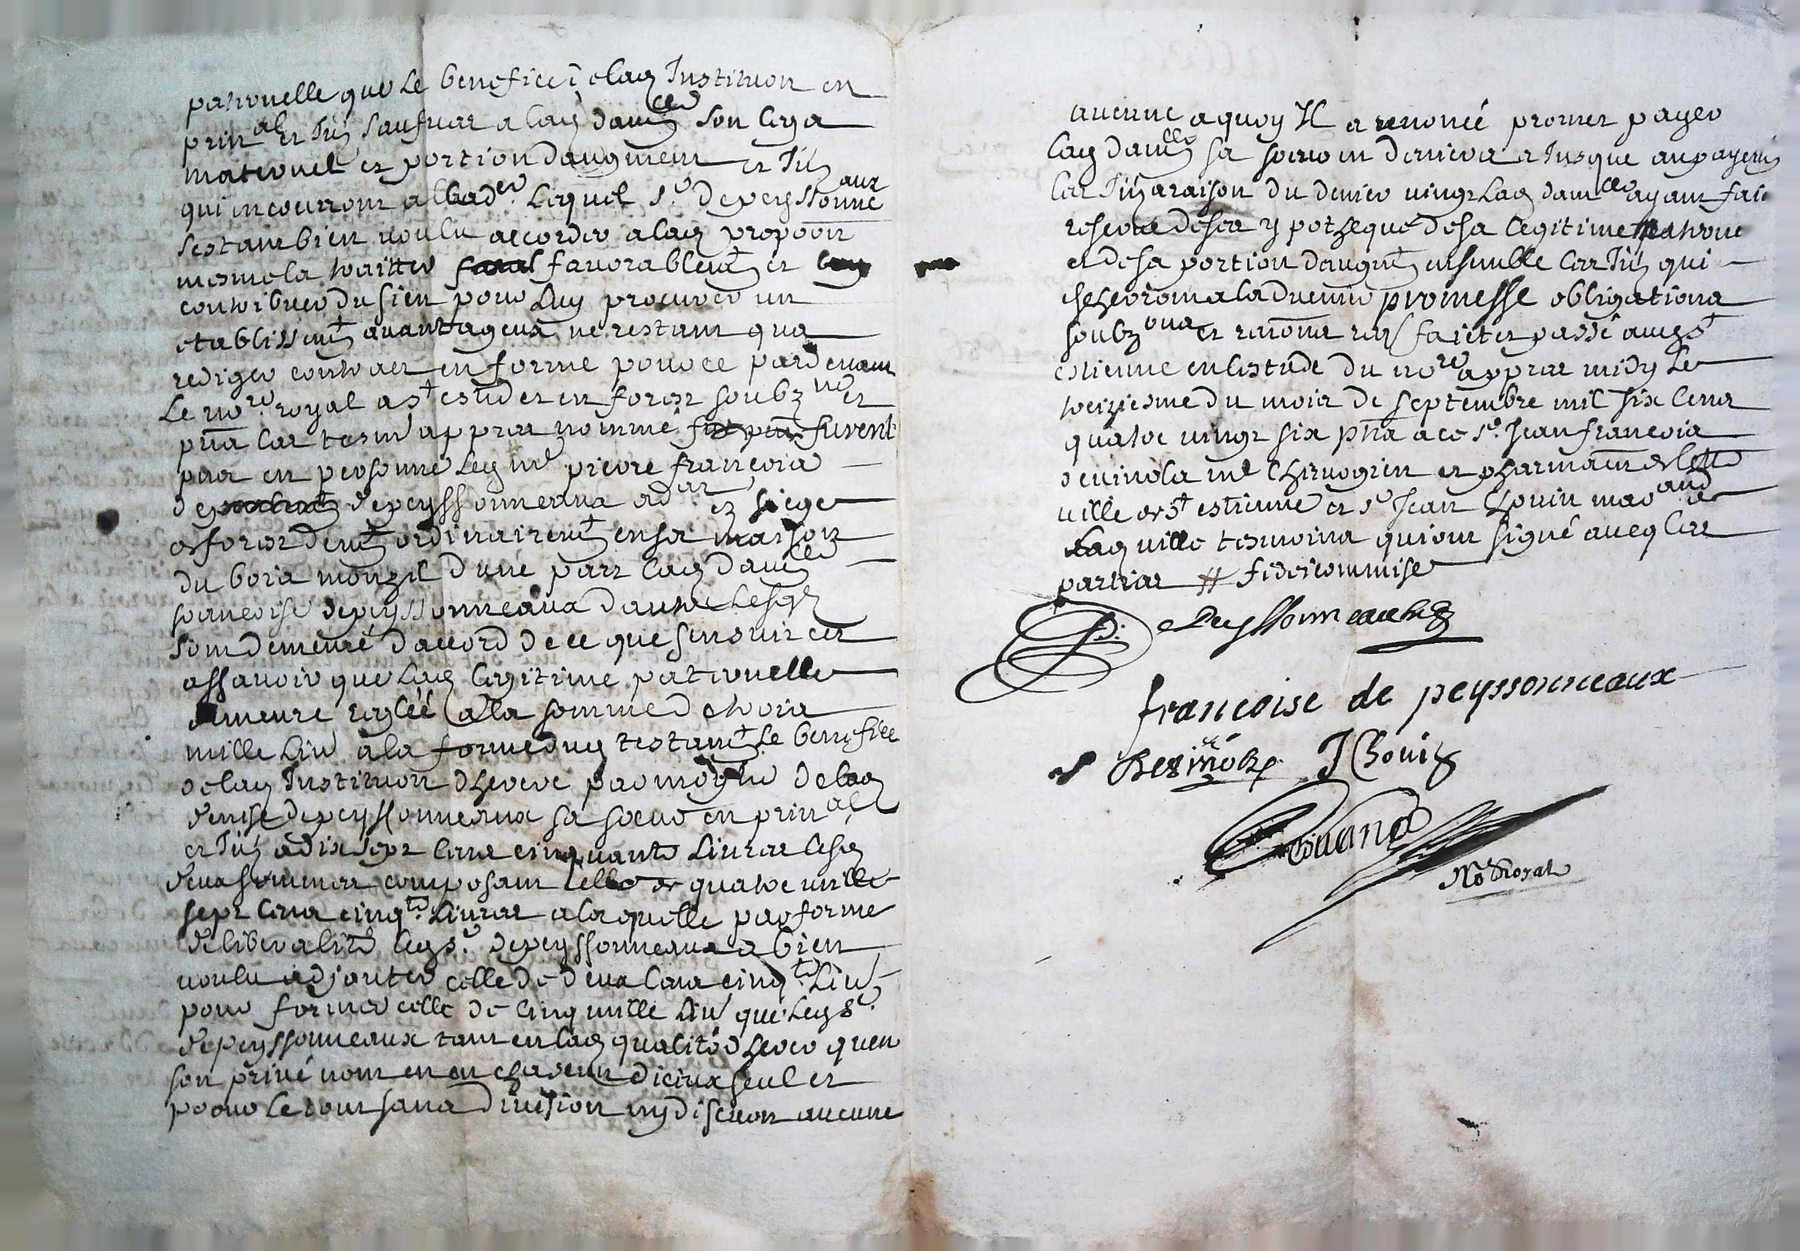 paternelle que le benefice de lad Institution en
prin.al et Intz sauf uar a lad dam.lle son legat
maternel et portion daugment et Intz
qui incourront a lad.er lequel s.r depeyssonneaux
sestant bien voulu accorder a lad proposon
mesme la traitter favorablemt et
contribuer du sien pour luy procurer un
etablissemt avantageux ne restant qua
rediger contract en forme pour ce pardevant
le no.re royal a st estie de et en forestz soubz.né et
pnts les tesm apprez nommés furent
par en personne led me pierre françois
de depeyssonneaux ad.at ez siege
de forest demt ordinairemt en sa maison
du bois monzil d'une part lad dam.lle
françoise depeyssonneaux dautre lesqz
sont demeuré d'accord de ce que sensuit cest
assavoir que lad legitime paternelle
demeure reglée a la somme de trois
mille liv a la forme dud testamt le benefice
de lad Institution dheere par moytié de lad
denise depeyssonneaux sa soeur en prin.al
et Intz a dix sept cens cinquante livres lesd
deux sommes composant celle de quatre mille
sept cens cinq.te livres a laquelle par forme
de liberalité led s.r depeyssonneaux a bien
voulu adjouter celle de deux cens cinq.te liv
pour former celle de cinq mille liv que led s.r
depeyssonneaux tant en lad qualité dheer quen
son privé nom en un chascun diceux seul et
pour le tout sans division ny discution aucune
aucune a quoy Il a renoncé promet payer
lad dam.lle sa soeur en deniers a Jusque au payemt
les Intz a raison du denier vingt lad dam.lle ayant fait
reserve de ses ypotheque de sa legitime paterne
et de sa portion daugmt ensemble les Intz qui
escherront a ladvenir promesse obligations
soubz.ons et renons reqs fait et passé aud st
estienne en lestude du no.re apprez midy le
treiziesme du mois de septembre mil six cens
quatre vingt six pnts a ce s.r Jean françois
devinols me chirurgien et pharmacien de cette
ville de st estienne et s.r Jean Thovin marchand de
lad ville tesmoins qui ont signé avec les
parties # fideicommise
Depeyssonneaux
françoise de peyssonneaux
Devinolz J Thovin
No Royal